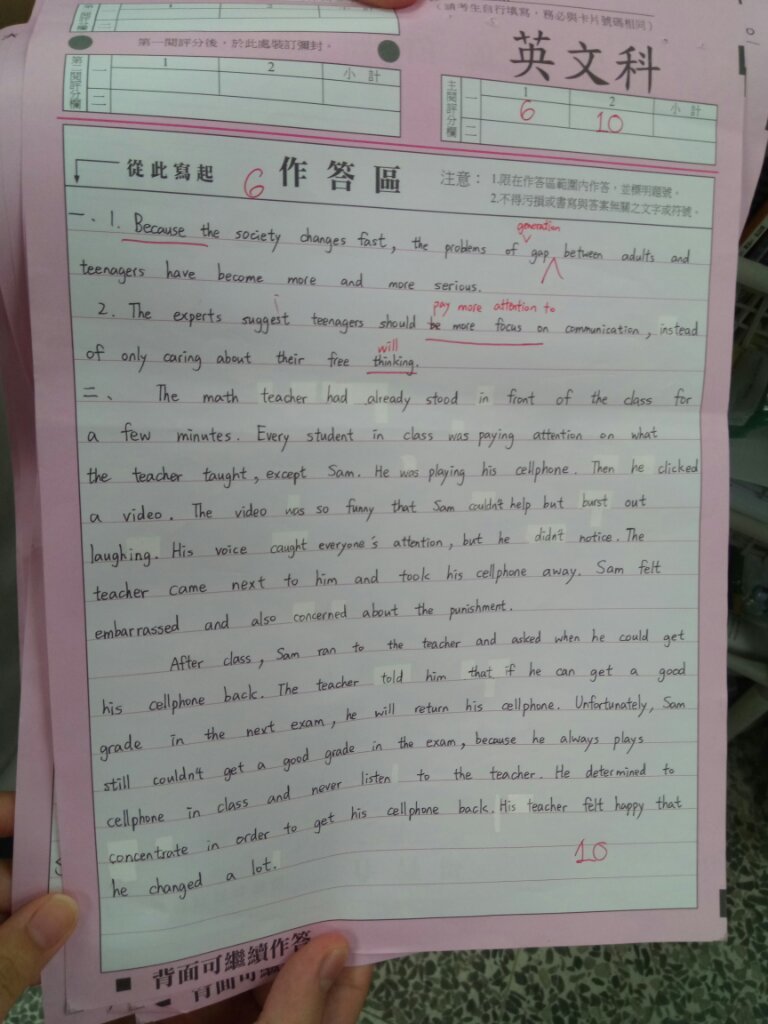 (請考生自行填寫,務必與卡片號碼相同)
第一閱評分後,於此處裝訂彌封。
英文科
第二閱評分欄
一
二
1 2 小計
主閱評分欄
一
二
1 2 小計
6 10
從此寫起 6 作答區
注意: 1.限在作答區範圍內作答,並標明題號。
2.不得污損或書寫與答案無關之文字或符號。
generation
一、1. Because the society changes fast, the problems of gap between adults and
teenagers have become more and more serious.
pay more attention to
2. The experts suggest teenagers should be more focus on communication, instead
will
of only caring about their free thinking.
二、 The math teacher had already stood in front of the class for
a few minutes. Every student in class was paying attention on what
the teacher taught, except Sam. He was playing his cellphone. Then he clicked
a video. The video was so funny that Sam couldn't help but burst out
laughing. His voice caught everyone's attention, but he didn't notice. The
teacher came next to him and took his cellphone away. Sam felt
embarrassed and also concerned about the punishment.
After class, Sam ran to the teacher and asked when he could get
his cellphone back. The teacher told him that if he can get a good
grade in the next exam, he will return his cellphone. Unfortunately, Sam
still couldn't get a good grade in the exam, because he always plays
cellphone in class and never listen to the teacher. He determined to
concentrate in order to get his cellphone back. His teacher felt happy that
he changed a lot.
10
■ 背面可繼續作答
背面可繼續作答